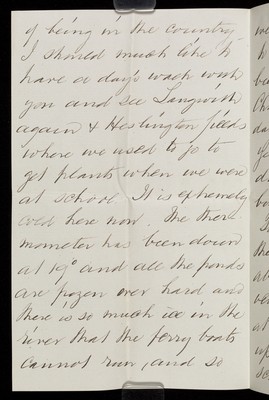 of being in the country
I should much like to
have a day's walk with
you and see Langwith
again & Heslington fields
where we used to go to
get plants when we were
at school. It is extremely
cold here now. The ther-
mometer has been down
at 19° and all the ponds
are frozen over hard and
there is so much ice in the
river that the ferry boats
cannot run, and so